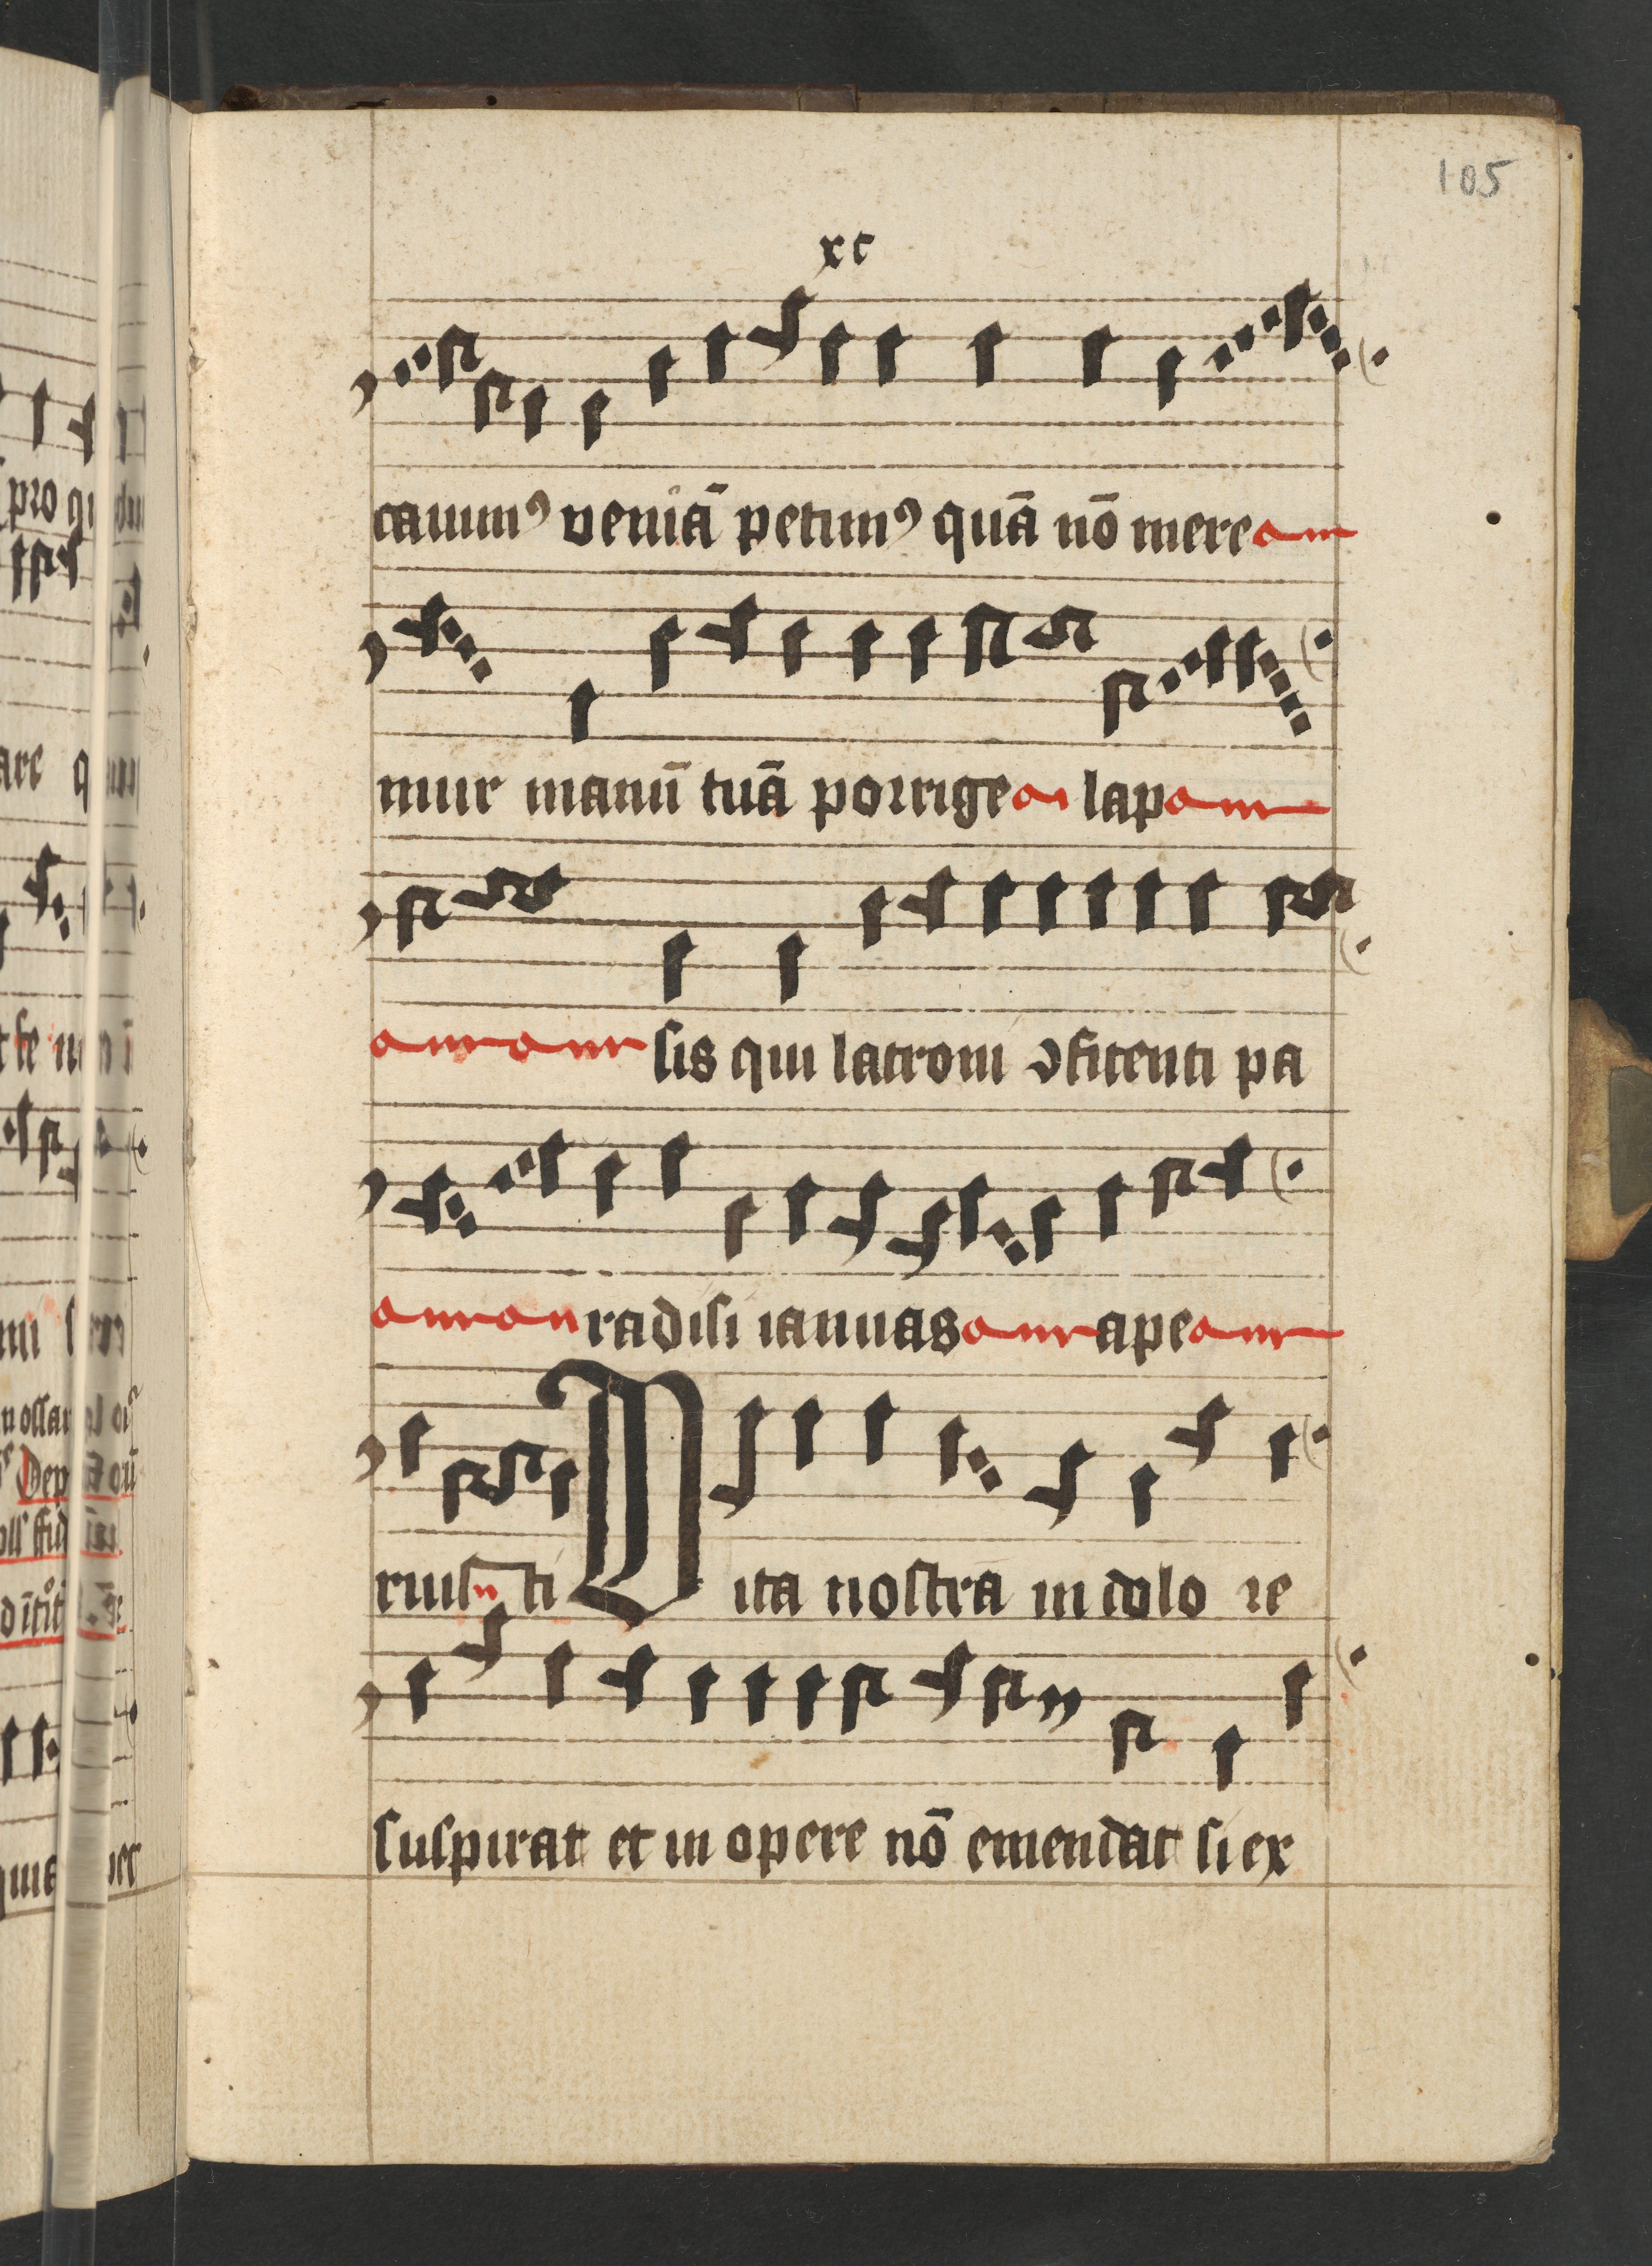 105
xc
cauimꝰ veniā petimꝰ quā nō mere
mur manū tuā porrige lap
sis qui latroni ꝯfitenti pa
radisi ianuas ape
ruisti Vita nostra in dolo re
suspirat et in opere nō emendat si ex